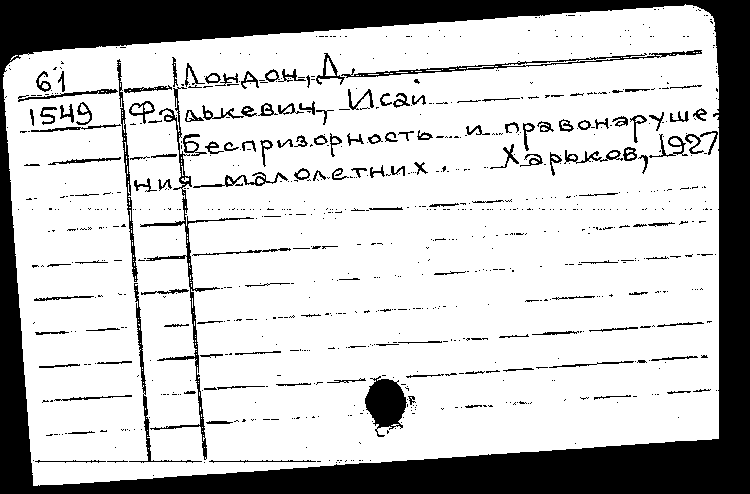 61 Лондон, Д.
1549 Фалькевич, Исай
Беспризорность и правонаруше-
ния малолетних. Харьков, 1927